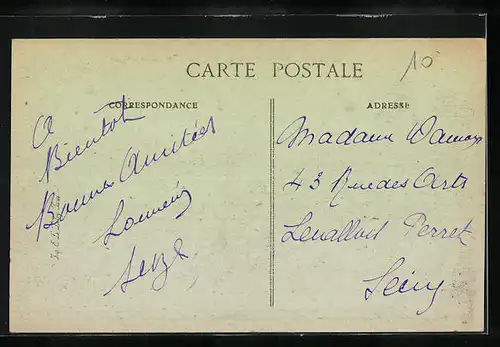 CARTE POSTALE
10
CORRESPONDANCE
A
Bientot
Bonnes Amitiées
ADRESSE
Madame
43 Rue des Arts
Levallois Perret
Seine